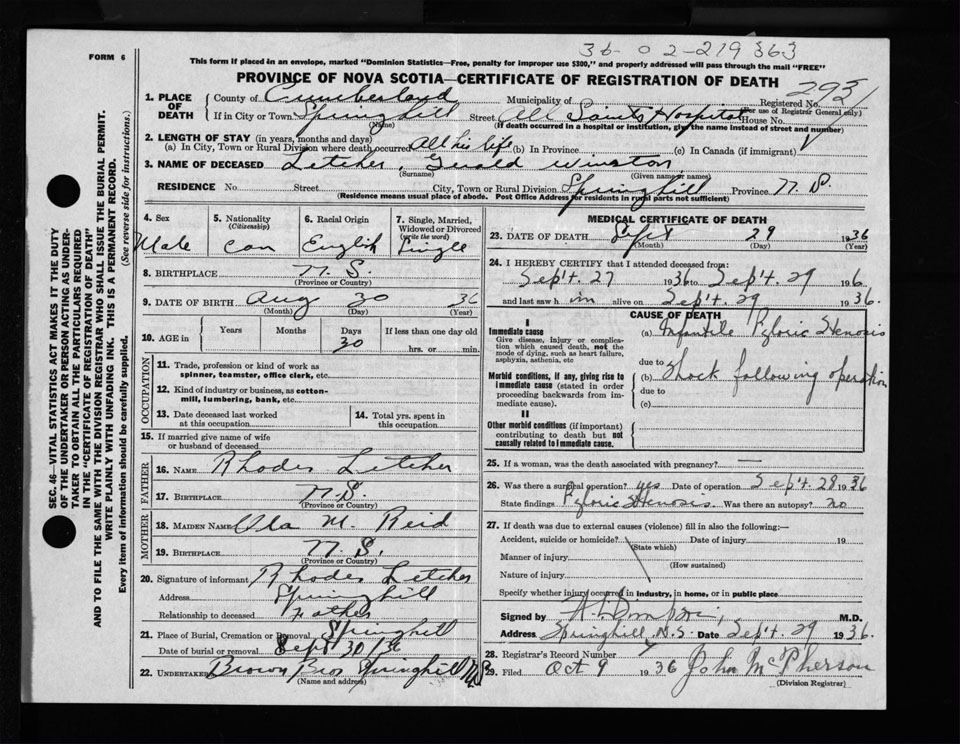 36-02-219363
FORM 6
This form if placed in an envelope, marked "Dominion Statistics—Free, penalty for improper use $300," and properly addressed will pass through the mail "FREE"
PROVINCE OF NOVA SCOTIA—CERTIFICATE OF REGISTRATION OF DEATH
SEC. 46—VITAL STATISTICS ACT MAKES IT THE DUTY
OF THE UNDERTAKER OR PERSON ACTING AS UNDER-
TAKER TO OBTAIN ALL THE PARTICULARS REQUIRED
IN THE "CERTIFICATE OF REGISTRATION OF DEATH"
AND TO FILE THE SAME WITH THE DIVISION REGISTRAR WHO SHALL ISSUE THE BURIAL PERMIT.
WRITE PLAINLY WITH UNFADING INK. THIS IS A PERMANENT RECORD.
Every item of information should be carefully supplied. (See reverse side for instructions.)
1. PLACE OF DEATH County of Cumberland Municipality of Registered No. 2931
(For use of Registrar General only)
If in City or Town Springhill Street All Saints Hospital House No.
(Name) (If death occurred in a hospital or institution, give the name instead of street and number)
2. LENGTH OF STAY (in years, months and days)
(a) In City, Town or Rural Division where death occurred All his life (b) In Province (c) In Canada (if immigrant)
3. NAME OF DECEASED Letcher, Gerald Winston
(Surname) (Given name or names)
RESIDENCE No Street City, Town or Rural Division Springhill Province N. S.
(Residence means usual place of abode. Post Office Address for residents in rural parts not sufficient)
4. Sex
Male
5. Nationality
(Citizenship)
Can
6. Racial Origin
English
7. Single, Married,
Widowed or Divorced
(write the word)
Single
8. BIRTHPLACE N. S.
(Province or Country)
9. DATE OF BIRTH Aug 30 36
(Month) (Day) (Year)
10. AGE in Years Months Days If less than one day old
30 hrs. or min.
OCCUPATION
11. Trade, profession or kind of work as
spinner, teamster, office clerk, etc.
12. Kind of industry or business, as cotton-
mill, lumbering, bank, etc.
13. Date deceased last worked
at this occupation
14. Total yrs. spent in
this occupation
15. If married give name of wife
or husband of deceased
FATHER
16. NAME Rhodes Letcher
17. BIRTHPLACE N. S.
(Province or Country)
MOTHER
18. MAIDEN NAME Ola M. Reid
19. BIRTHPLACE N. S.
(Province or Country)
20. Signature of informant Rhodes Letcher
Address Springhill
Relationship to deceased Father
21. Place of Burial, Cremation or Removal Springhill
Date of burial or removal Sept 30/36
22. UNDERTAKER Brown Bros Springhill N.S.
(Name and address)
MEDICAL CERTIFICATE OF DEATH
23. DATE OF DEATH Sept 29 1936
(Month) (Day) (Year)
24. I HEREBY CERTIFY that I attended deceased from:
Sept. 27 1936 to Sept. 29 1936
and last saw him alive on Sept. 29 1936.
CAUSE OF DEATH
I
Immediate cause
Give disease, injury or complica-
tion which caused death, not the
mode of dying, such as heart failure,
asphyxia, asthenia, etc
(a) Infantile Pyloric Stenosis
due to
Morbid conditions, if any, giving rise to
immediate cause (stated in order
proceeding backwards from im-
mediate cause).
(b) Shock following operation
due to
(c)
II
Other morbid conditions (if important)
contributing to death but not
causally related to immediate cause.
25. If a woman, was the death associated with pregnancy? —
26. Was there a surgical operation? yes Date of operation Sept. 28 1936
State findings Pyloric Stenosis Was there an autopsy? no
27. If death was due to external causes (violence) fill in also the following:—
Accident, suicide or homicide? Date of injury 19
(State which)
Manner of injury
(How sustained)
Nature of injury
Specify whether injury occurred in industry, in home, or in public place
Signed by M.D.
Address Springhill, N.S. Date Sept. 29 1936.
28. Registrar's Record Number
29. Filed Oct 9 1936 John McPherson
(Division Registrar)